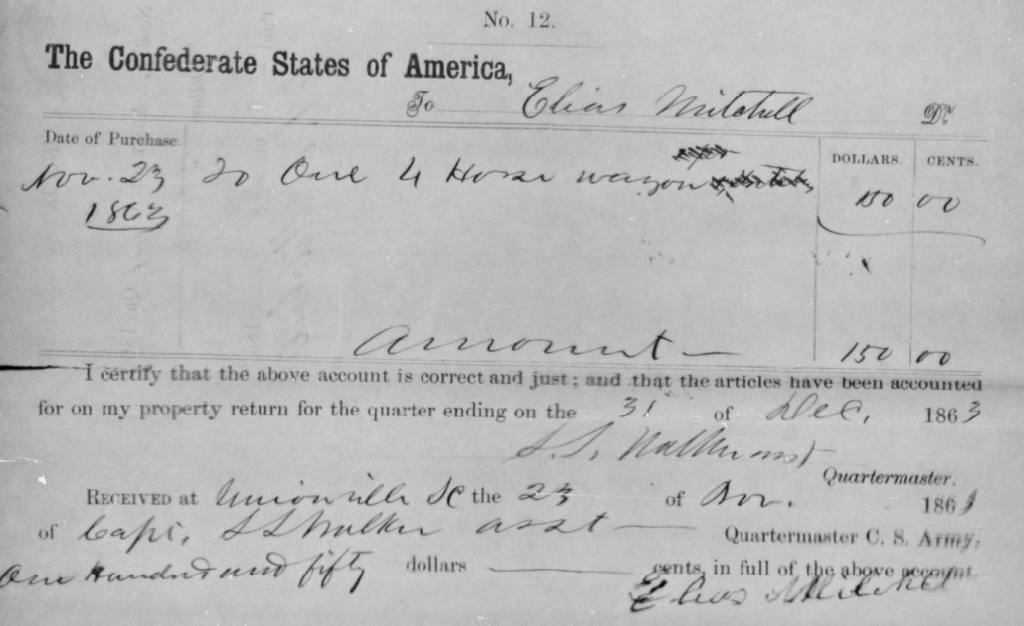 No. 12.
The Confederate States of America,
To Elias Mitchell Dr.
Date of Purchase. DOLLARS. CENTS.
Nov. 23 To One 4 Horse wagon 150 00
1863
Amount — 150 00
I certify that the above account is correct and just; and that the articles have been accounted
for on my property return for the quarter ending on the 31 of Dec, 1863
Quartermaster.
RECEIVED at Unionville SC the 23 of Nov. 1863
of Capt, S S Walker asst — Quartermaster C. S. Army,
One Hundred and fifty dollars — cents, in full of the above account.
Elias Mitchel